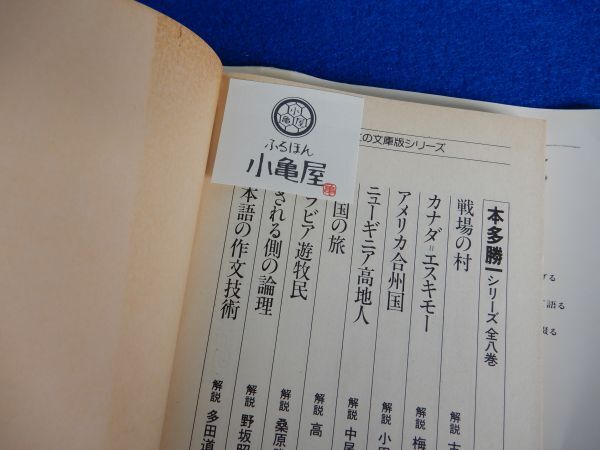 小亀屋
ふるほん
小亀屋
の文庫版シリーズ
本多勝一シリーズ全八巻
戦場の村 解説
カナダ=エスキモー 解説 梅
アメリカ合州国 解説 小田
ニューギニア高地人 解説 中尾
国の旅 解説 高
ラビア遊牧民 解説 桑原
される側の論理 解説 野坂昭
本語の作文技術 解説 多田道
する
語る
綴る